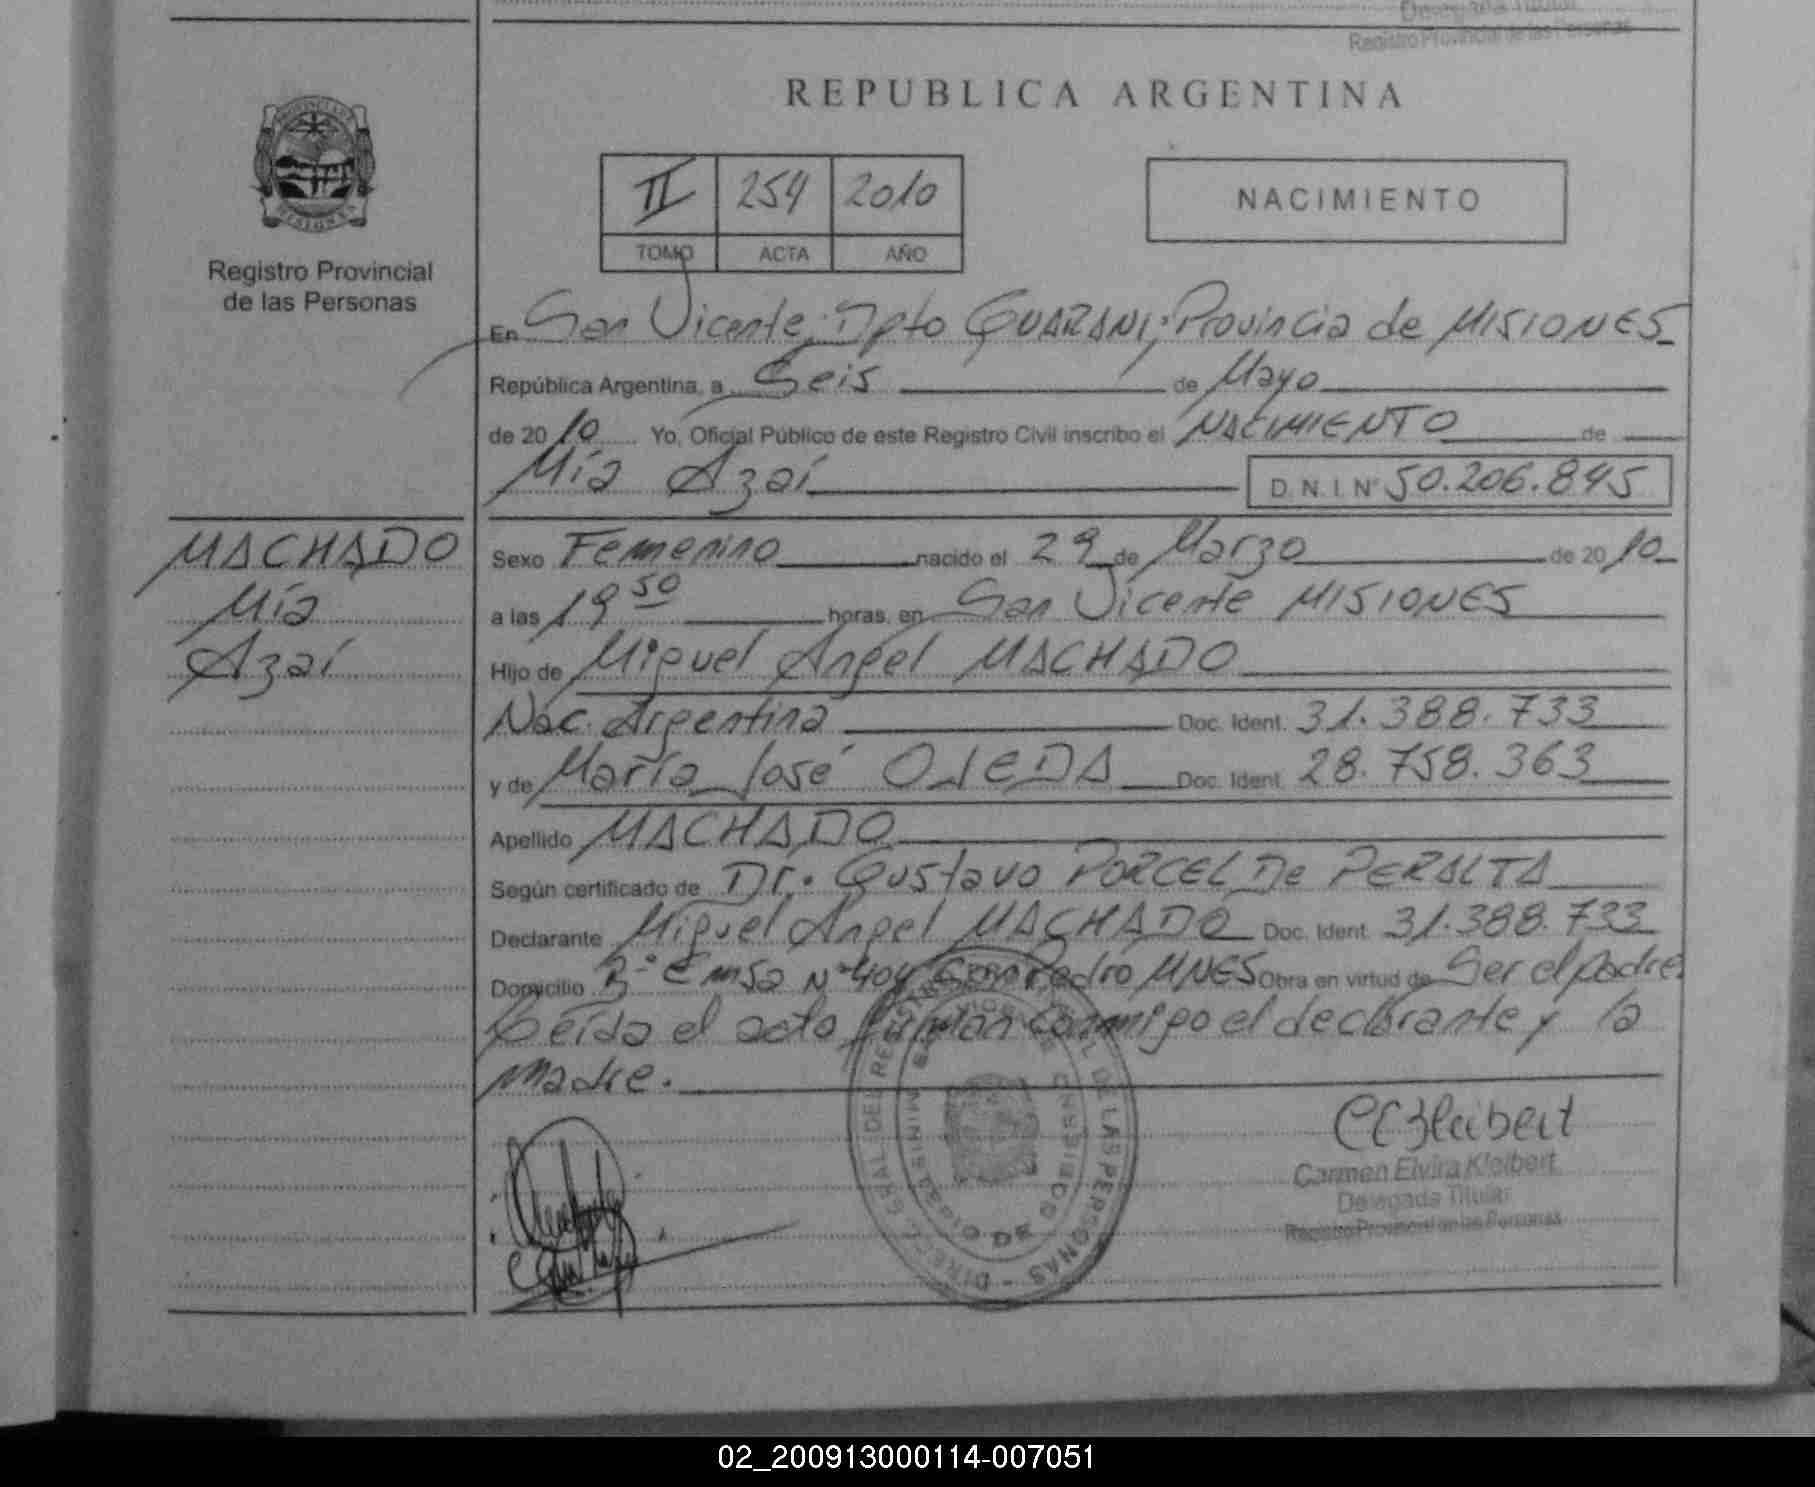 Delegada Titular
Registro Provincial de las Personas
REPUBLICA ARGENTINA
PROVINCIA DE
MISIONES
Registro Provincial
de las Personas
II 254 2010
TOMO ACTA AÑO
NACIMIENTO
En San Vicente; Dpto GUARANI; Provincia de MISIONES
República Argentina, a Seis de Mayo
de 2010 Yo, Oficial Público de este Registro Civil inscribo el NACIMIENTO de
Mía Azaí D.N.I. Nº 50.206.845
MACHADO
Mía
Azaí
Sexo Femenino nacido el 29 de Marzo de 2010
a las 19 50 horas, en San Vicente MISIONES
Hijo de Miguel Angel MACHADO
Nac. Argentina Doc. Ident. 31.388.733
y de María José OJEDA Doc. Ident. 28.758.363
Apellido MACHADO
Según certificado de Dr. Gustavo PORCEL De PERALTA
Declarante Miguel Angel MACHADO Doc. Ident. 31.388.733
Domicilio Bº Emsa Nº 404 San Pedro MNES Obra en virtud de Ser el padre
Leída el acta firman conmigo el declarante y la
madre.
Carmen Elvira Kleibert
Delegada Titular
Registro Provincial de las Personas
02_200913000114-007051